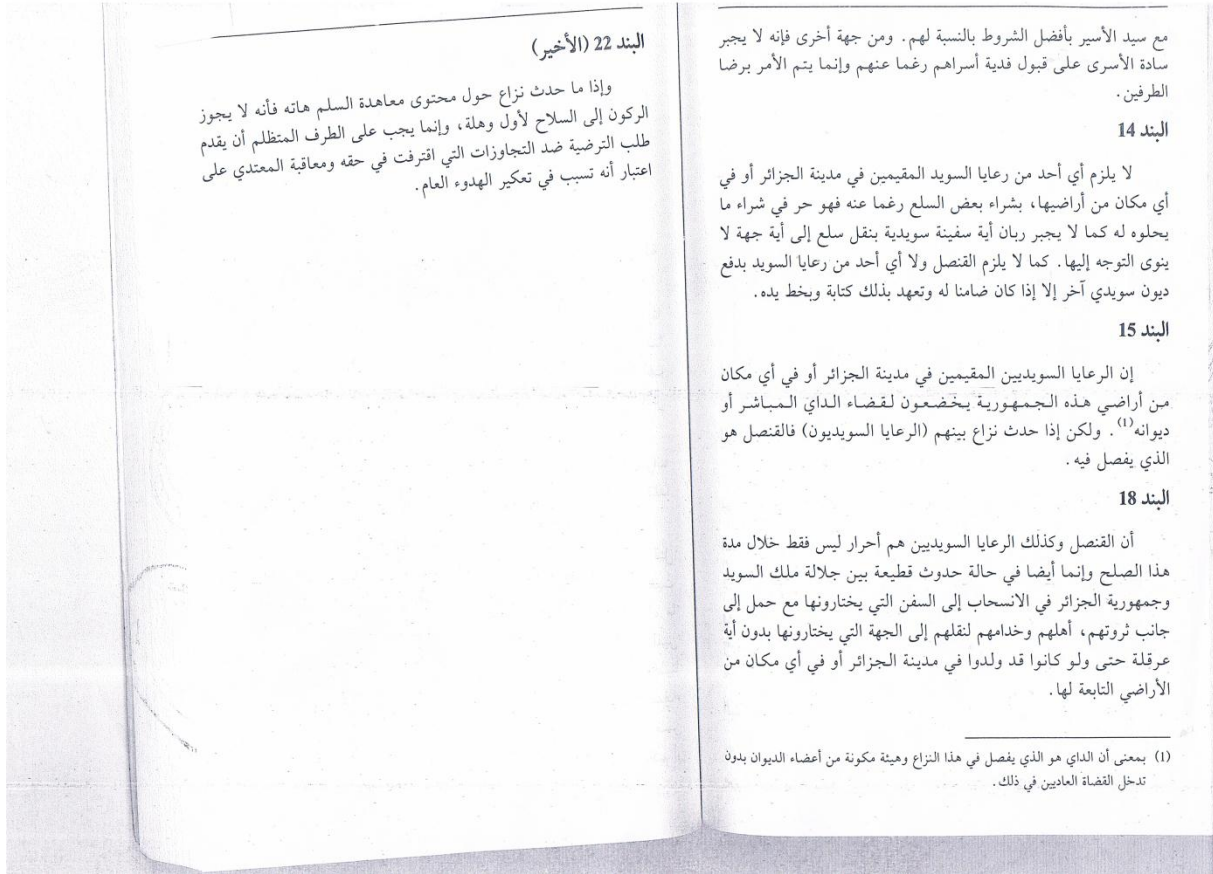 مع سيد الأسير بأفضل الشروط بالنسبة لهم. ومن جهة أخرى فإنه لا يجبر
سادة الأسرى على قبول فدية أسراهم رغما عنهم وإنما يتم الأمر برضا
الطرفين.
البند 14
لا يلزم أي أحد من رعايا السويد المقيمين في مدينة الجزائر أو في
أي مكان من أراضيها، بشراء بعض السلع رغما عنه فهو حر في شراء ما
يحلوه له كما لا يجبر ربان أية سفينة سويدية بنقل سلع إلى أية جهة لا
ينوى التوجه إليها. كما لا يلزم القنصل ولا أي أحد من رعايا السويد بدفع
ديون سويدي آخر إلا إذا كان ضامنا له وتعهد بذلك كتابة وبخط يده.
البند 15
إن الرعايا السويديين المقيمين في مدينة الجزائر أو في أي مكان
من أراضي هذه الجمهورية يخضعون لقضاء الداي المباشر أو
ديوانه(1). ولكن إذا حدث نزاع بينهم (الرعايا السويديون) فالقنصل هو
الذي يفصل فيه.
البند 18
أن القنصل وكذلك الرعايا السويديين هم أحرار ليس فقط خلال مدة
هذا الصلح وإنما أيضا في حالة حدوث قطيعة بين جلالة ملك السويد
وجمهورية الجزائر في الانسحاب إلى السفن التي يختارونها مع حمل إلى
جانب ثروتهم، أهلهم وخدامهم لنقلهم إلى الجهة التي يختارونها بدون أية
عرقلة حتى ولو كانوا قد ولدوا في مدينة الجزائر أو في أي مكان من
الأراضي التابعة لها.
(1) بمعنى أن الداي هو الذي يفصل في هذا النزاع وهيئة مكونة من أعضاء الديوان بدون
تدخل القضاة العاديين في ذلك.
البند 22 (الأخير)
وإذا ما حدث نزاع حول محتوى معاهدة السلم هاته فأنه لا يجوز
الركون إلى السلاح لأول وهلة، وإنما يجب على الطرف المتظلم أن يقدم
طلب الترضية ضد التجاوزات التي اقترفت في حقه ومعاقبة المعتدي على
اعتبار أنه تسبب في تعكير الهدوء العام.